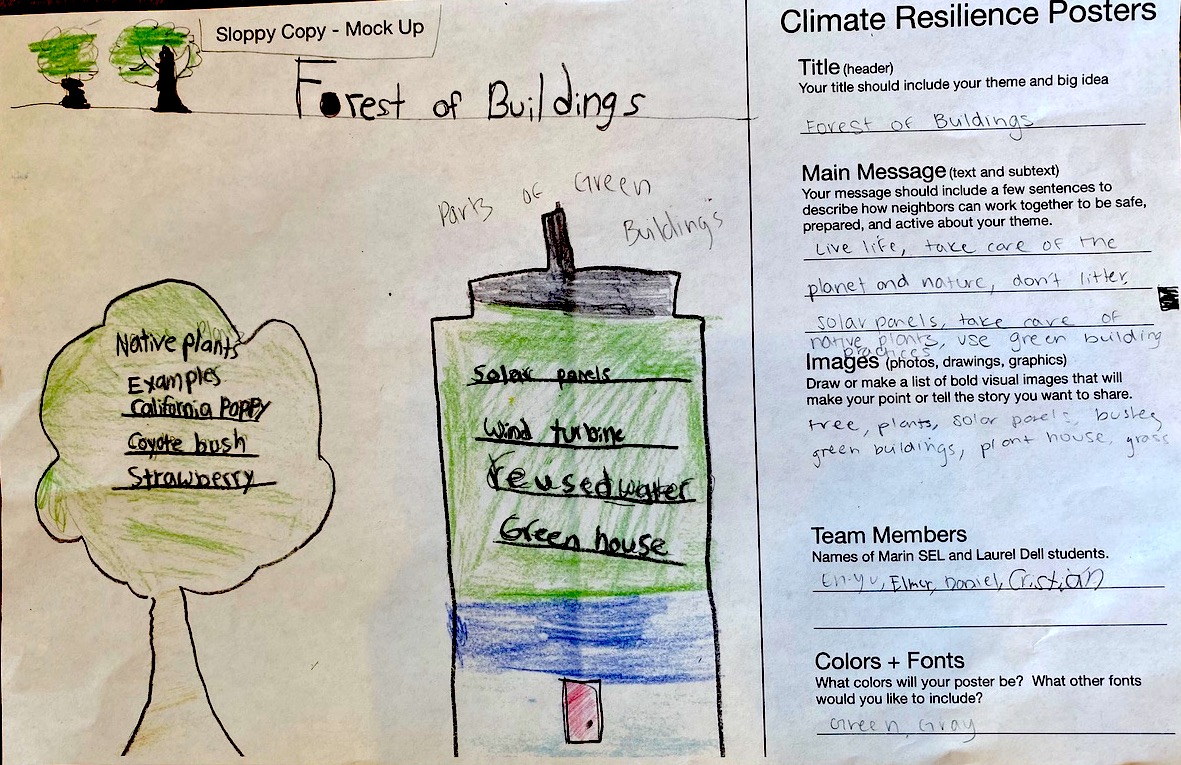 Sloppy Copy - Mock Up
Forest of Buildings
Parts of Green
Buildings
Native plants
Examples
California Poppy
Coyote bush
Strawberry
Solar panels
Wind turbine
reused water
Green house
Climate Resilience Posters
Title (header)
Your title should include your theme and big idea
Forest of Buildings
Main Message (text and subtext)
Your message should include a few sentences to
describe how neighbors can work together to be safe,
prepared, and active about your theme.
Live life, take care of the
planet and nature, don't litter,
solar panels, take care of
native plants, use green building
Images (photos, drawings, graphics)
Draw or make a list of bold visual images that will
make your point or tell the story you want to share.
tree, plants, solar panels,
green buildings, plant house, grass
Team Members
Names of Marin SEL and Laurel Dell students.
En-yu, Elmer, Daniel, Cristian
Colors + Fonts
What colors will your poster be? What other fonts
would you like to include?
Green, Gray